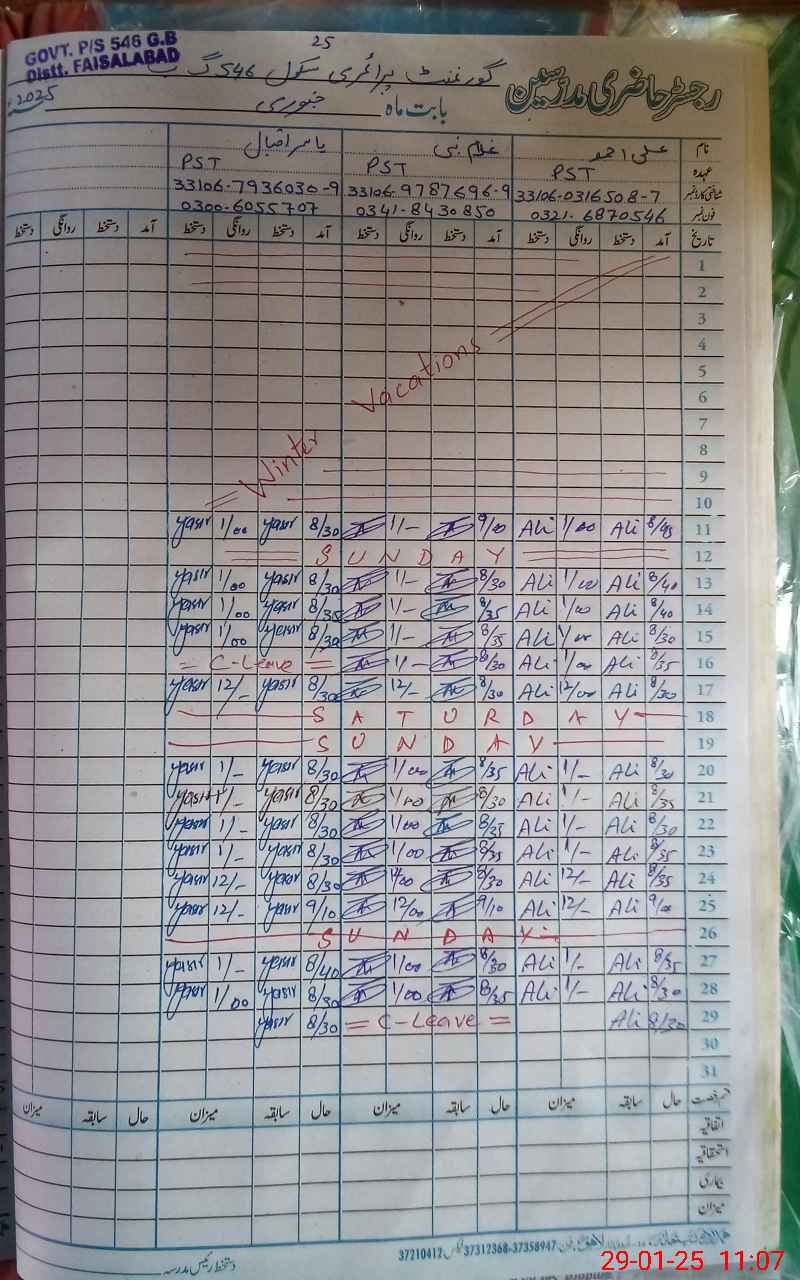 25
GOVT. P/S 546 G.B
Distt. FAISALABAD
رجسٹر حاضری مدرسین گورنمنٹ پرائمری سکول 546 گ ب
بابت ماہ جنوری 2025ء
نام علی احمد غلام نبی یاسر اقبال
عہدہ PST PST PST
شناختی کارڈ نمبر 33106-0316508-7 33106-9787696-9 33106-7936030-9
فون نمبر 0321-6870546 0341-8430850 0300-6055707
تاریخ آمد دستخط روانگی دستخط آمد دستخط روانگی دستخط آمد دستخط روانگی دستخط آمد دستخط روانگی دستخط
1
2
3
4
5
6
7
8
9
10
Winter Vacations
11 8/45 Ali 1/00 Ali 9/00 1/- 8/30 yasir 1/00 yasir
12 SUNDAY
13 8/40 Ali 1/00 Ali 8/30 1/- 8/30 yasir 1/00 yasir
14 8/40 Ali 1/00 Ali 8/35 1/- 8/35 yasir 1/00 yasir
15 8/30 Ali 1/00 Ali 8/35 1/- 8/30 yasir 1/00 yasir
16 8/35 Ali 1/00 Ali 8/30 1/- = C-Leave =
17 8/30 Ali 12/00 Ali 8/30 12/- 8/30 yasir 12/- yasir
18 SATURDAY
19 SUNDAY
20 8/30 Ali 1/- Ali 8/35 1/00 8/30 yasir 1/- yasir
21 8/35 Ali 1/- Ali 8/30 1/00 8/30 yasir 1/- yasir
22 8/30 Ali 1/- Ali 8/35 1/00 8/30 yasir 1/- yasir
23 8/35 Ali 1/- Ali 8/35 1/00 8/30 yasir 1/- yasir
24 8/35 Ali 12/- Ali 8/30 8/30 yasir 12/- yasir
25 9/00 Ali 12/- Ali 9/10 12/00 9/10 yasir 12/- yasir
26 SUNDAY
27 8/35 Ali 1/- Ali 8/30 1/00 8/40 yasir 1/- yasir
28 8/30 Ali 1/- Ali 8/35 1/00 8/30 yasir 1/00 yasir
29 8/30 Ali = C-Leave = 8/30 yasir
30
31
قسم رخصت حال سابقہ میزان حال سابقہ میزان حال سابقہ میزان حال سابقہ میزان
اتفاقیہ
استحقاقیہ
بیماری
میزان
37358947-37312368 37210412
دستخط رئیس مدرسہ
29-01-25 11:07